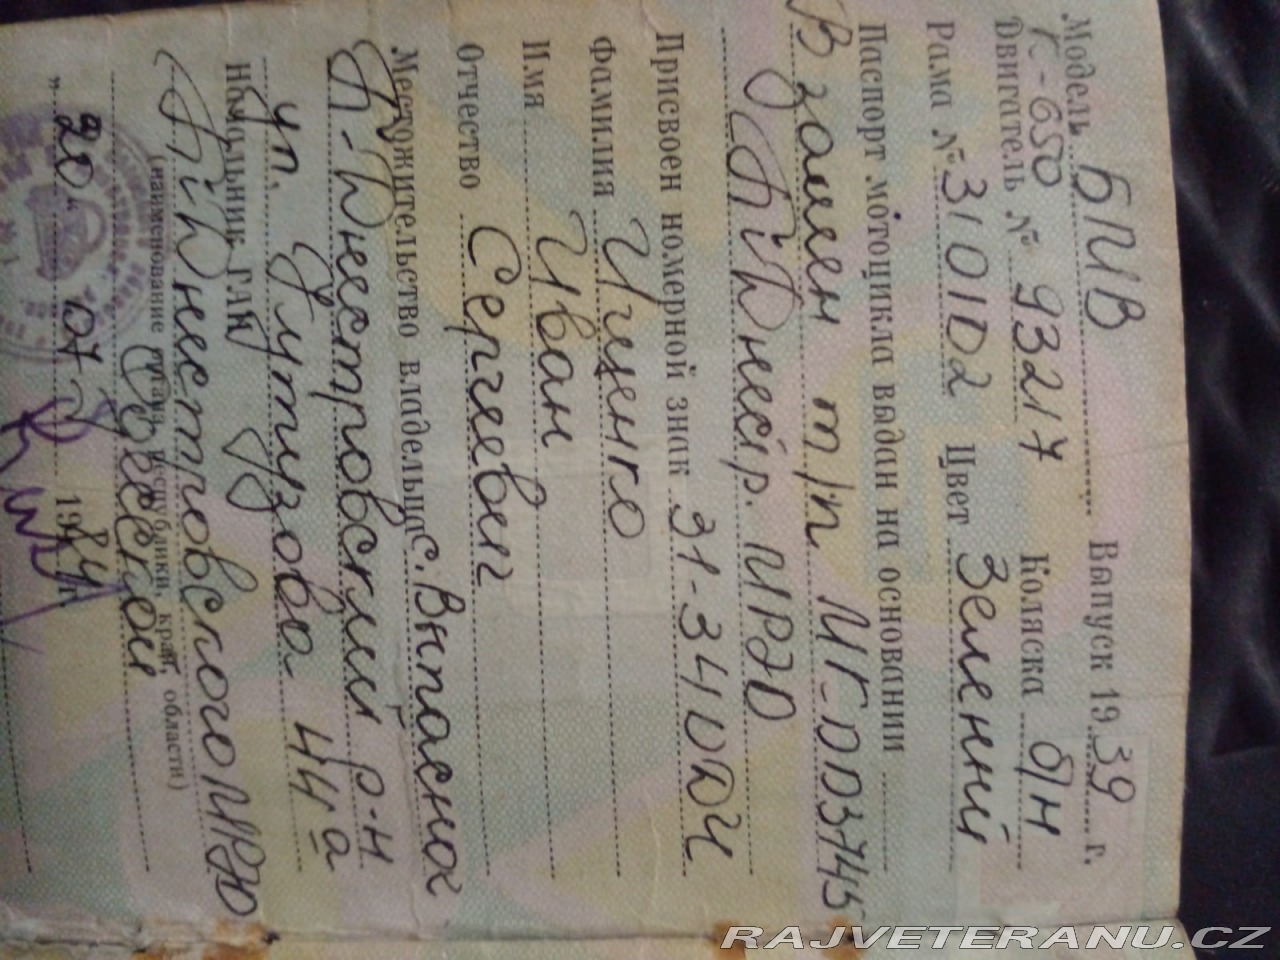 Модель БМВ Выпуск 1939 г.
К-650
Двигатель № 93217 Коляска б/н
Рама № 310102 Цвет Зеленний
Паспорт мотоцикла выдан на основании
Взамен т/п МГ 003745
Б.Днестр. МРЭО
Присвоен номерной знак 31-34 ОДЧ
Фамилия Ищенко
Имя Иван
Отчество Сергеевич
Местожительство владельца с. Выпасное
Б-Днестровский р-н
ул. Кутузова 44а
Начальник ГАИ
Б.Днестровского МРЭО
(наименование края, республики, край, области)
Одесской
„20“ 07 1984 г.
RAJVETERANU.CZ